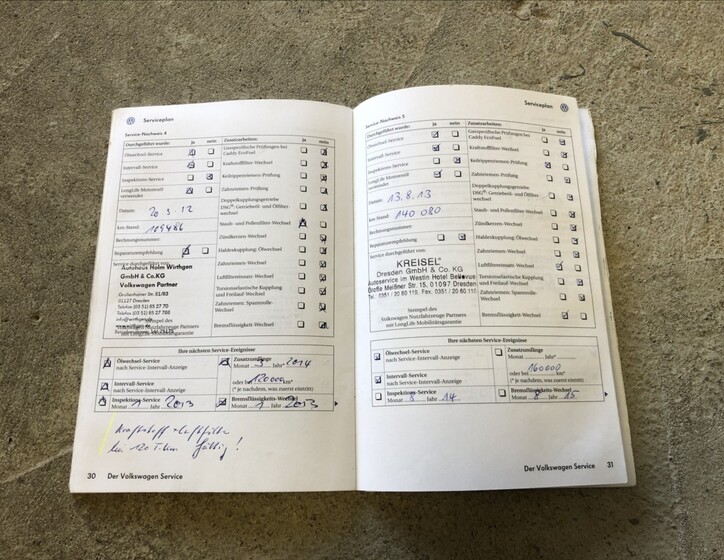 Serviceplan
Service-Nachweis 4
Durchgeführt wurde: ja nein Zusatzarbeiten: ja nein
Ölwechsel-Service
Gasspezifische Prüfungen bei Caddy EcoFuel
Intervall-Service
Kraftstofffilter-Wechsel
Inspektions-Service
Keilrippenriemen-Prüfung
LongLife Motorenöl verwendet
Zahnriemen-Prüfung
Doppelkupplungsgetriebe DSG®: Getriebeöl- und Ölfilterwechsel
Datum: 20.3.12
Staub- und Pollenfilter-Wechsel
Km-Stand: 109486
Zündkerzen-Wechsel
Rechnungsnummer:
Haldexkupplung: Ölwechsel
Reparaturempfehlung
Zahnriemen-Wechsel
Service durchgeführt von:
Autohaus Holm Wirthgen
GmbH & Co.KG
Volkswagen Partner
Großenhainer Str. 81/83
01127 Dresden
Telefon (03 51) 65 27 70
Luftfiltereinsatz-Wechsel
Torsionselastische Kupplung und Freilauf-Wechsel
Zahnriemen: Spannrolle-Wechsel
Bremsflüssigkeits-Wechsel
Stempel des
Volkswagen Nutzfahrzeuge Partners
mit LongLife Mobilitätsgarantie
Ihre nächsten Service-Ereignisse
Ölwechsel-Service
nach Service-Intervall-Anzeige
Zusatzumfänge
Monat 3 Jahr 2014
oder bei 120000 km*
(* je nachdem, was zuerst eintritt)
Intervall-Service
nach Service-Intervall-Anzeige
Inspektions-Service
Monat 1 Jahr 2013
Bremsflüssigkeits-Wechsel
Monat 1 Jahr 2013
Kraftstoff + Luftfilter
bei 120 Tkm fällig!
30 Der Volkswagen Service
Serviceplan
Service-Nachweis 5
Durchgeführt wurde: ja nein Zusatzarbeiten: ja nein
Ölwechsel-Service
Gasspezifische Prüfungen bei Caddy EcoFuel
Intervall-Service
Kraftstofffilter-Wechsel
Inspektions-Service
Keilrippenriemen-Prüfung
LongLife Motorenöl verwendet
Zahnriemen-Prüfung
Doppelkupplungsgetriebe DSG®: Getriebeöl- und Ölfilterwechsel
Datum: 13.8.13
Staub- und Pollenfilter-Wechsel
Km-Stand: 140 080
Zündkerzen-Wechsel
Rechnungsnummer:
Haldexkupplung: Ölwechsel
Reparaturempfehlung
Zahnriemen-Wechsel
Service durchgeführt von:
KREISEL
Dresden GmbH & Co. KG
Autoservice im Westin Hotel Bellevue
Große Meißner Str. 15, 01097 Dresden
Tel. 0351 / 20 60 110, Fax. 0351 / 20 60 110
Luftfiltereinsatz-Wechsel
Torsionselastische Kupplung und Freilauf-Wechsel
Zahnriemen: Spannrolle-Wechsel
Bremsflüssigkeits-Wechsel
Stempel des
Volkswagen Nutzfahrzeuge Partners
mit LongLife Mobilitätsgarantie
Ihre nächsten Service-Ereignisse
Ölwechsel-Service
nach Service-Intervall-Anzeige
Zusatzumfänge
Monat Jahr
oder bei 160000 km*
(* je nachdem, was zuerst eintritt)
Intervall-Service
nach Service-Intervall-Anzeige
Inspektions-Service
Monat 8 Jahr 14
Bremsflüssigkeits-Wechsel
Monat 8 Jahr 15
Der Volkswagen Service 31